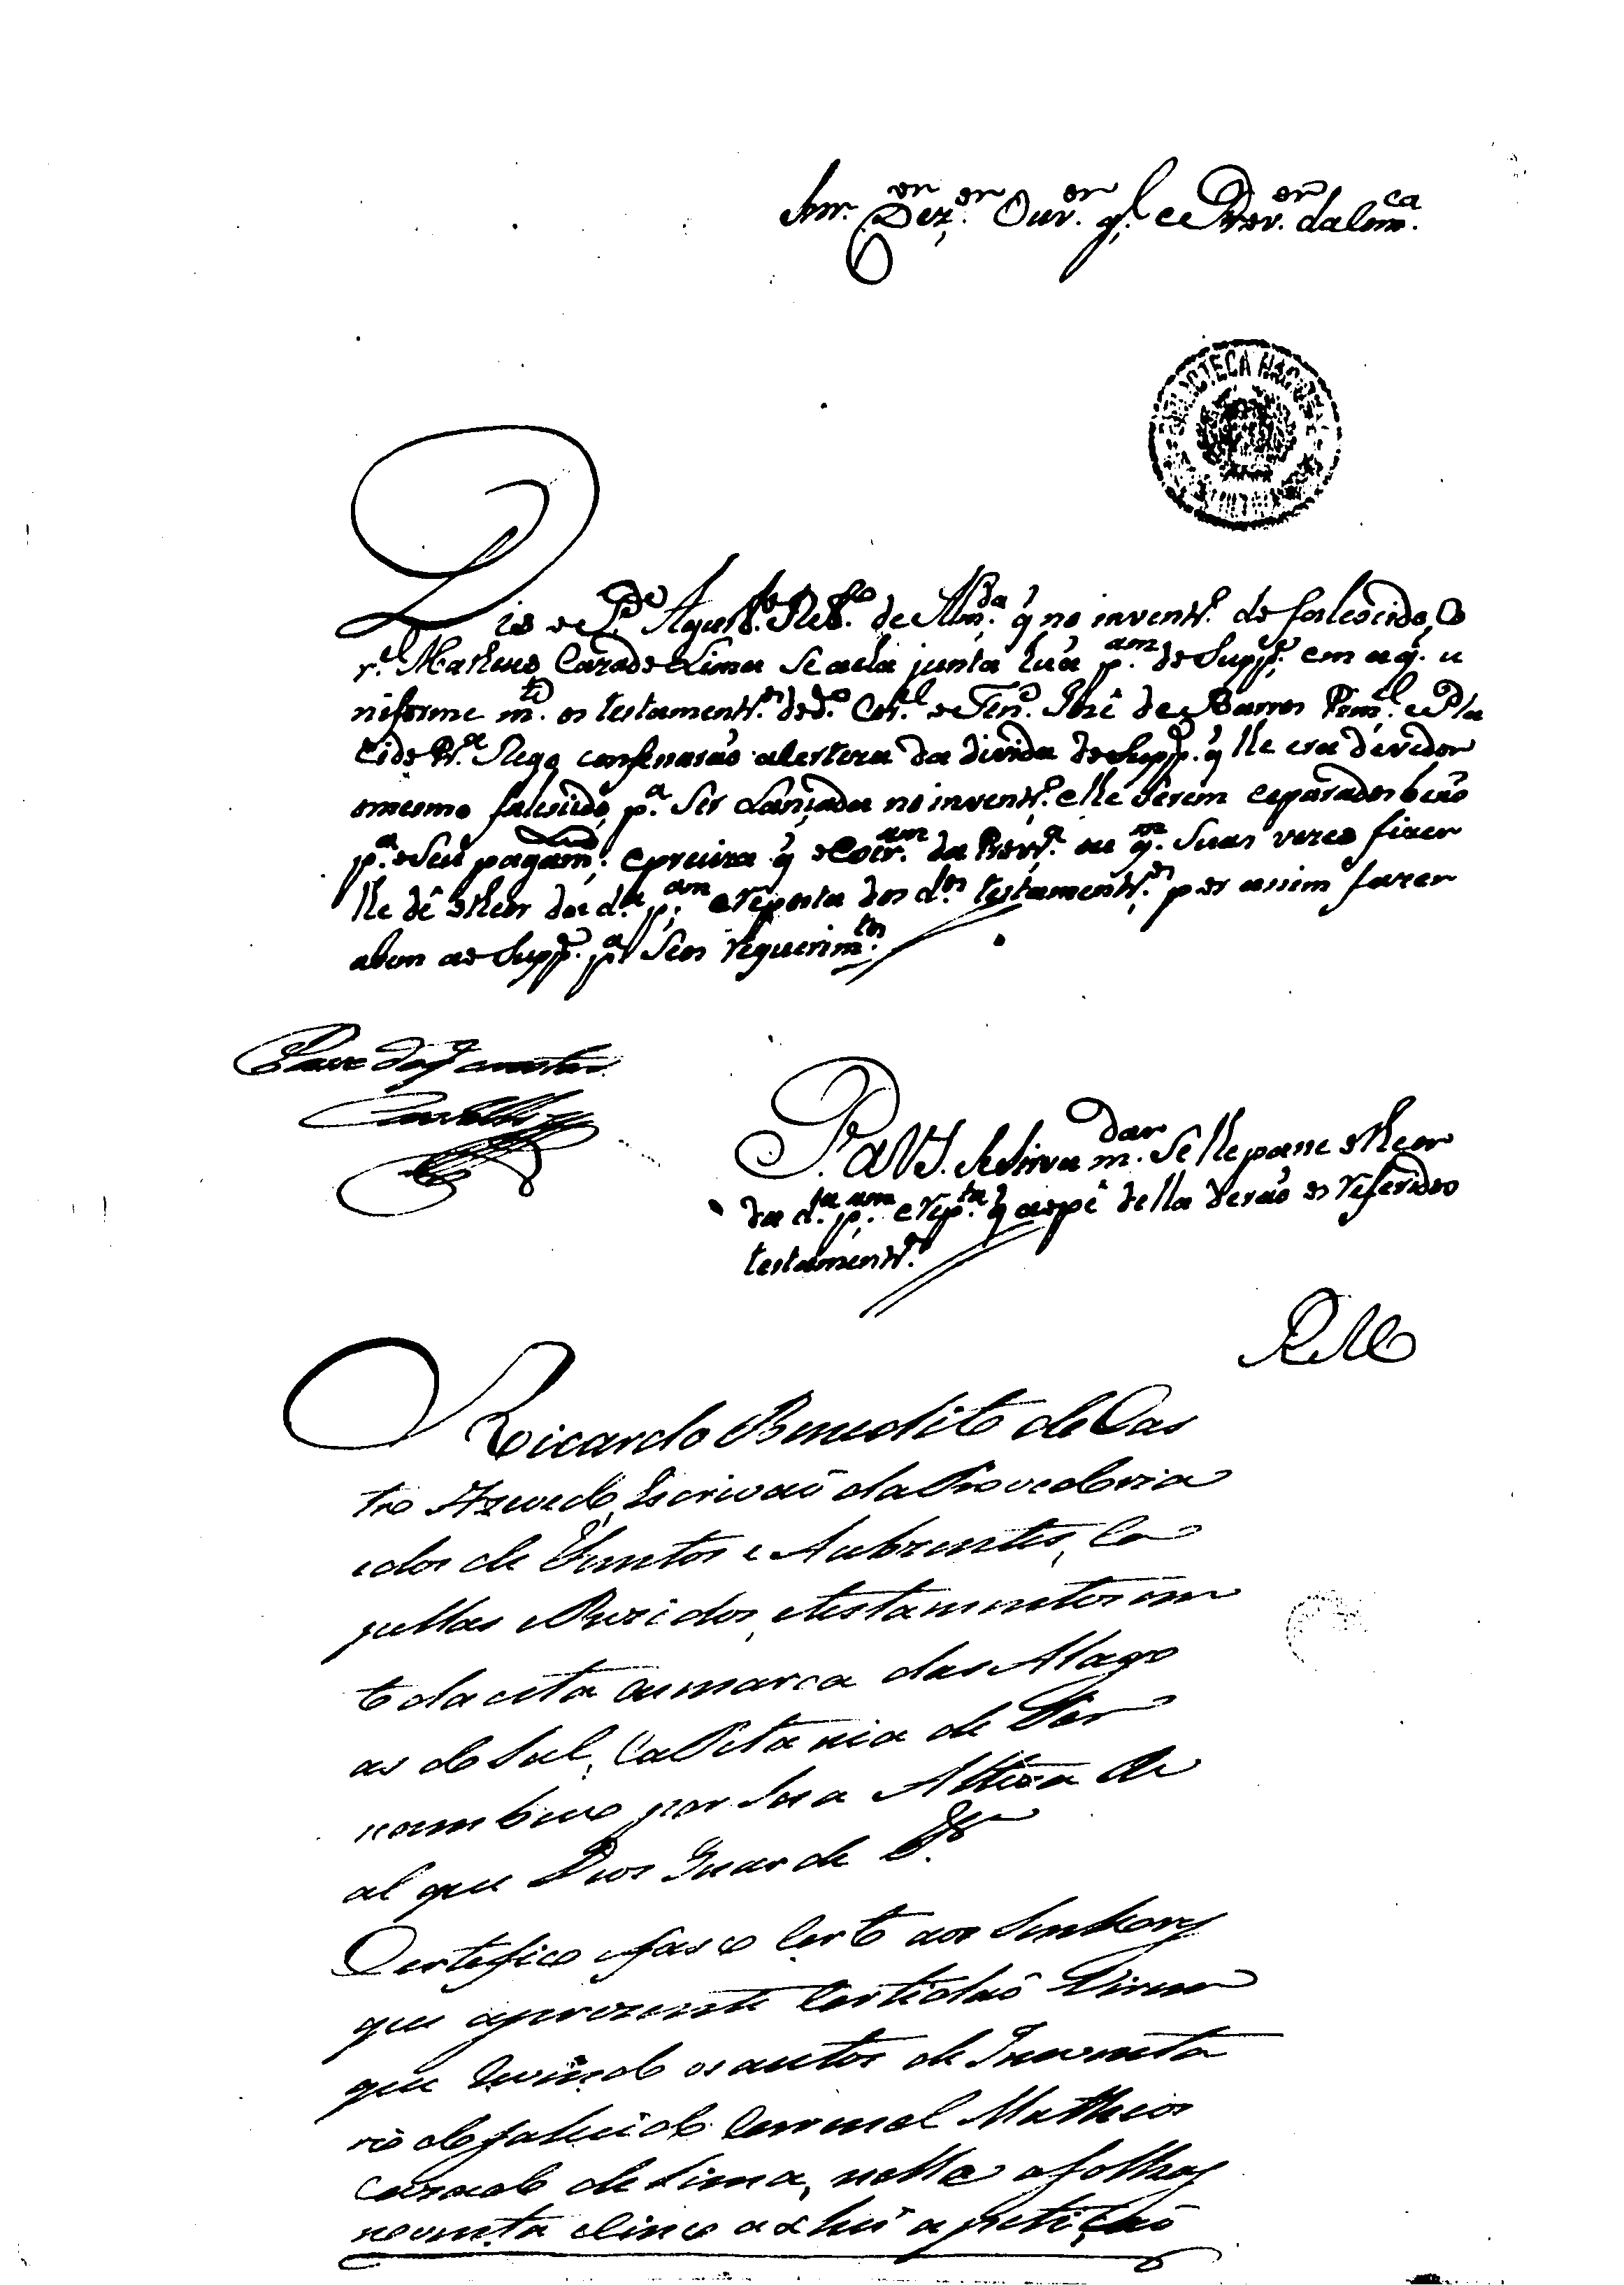 Snr. Dez.or Ouv.or g.l e Prov.or da Com.ca
BIBLIOTECA NACIONAL
Diz o P.e Agost.o Reb.lo de Alm.da q̃ no invent.ro do falescido Co
r.el Matheus Cazado de Lima se acha junta hũa p.am do Supp.e em a q.l u
niforme m.te os testament.ros do d.o Cor.el o Ten.e José de Barros Pim.el e Pla
cido Pr.a Rego confessarão a certeza da divida do Supp.e q̃ lhe era devedor
o mesmo falescido, p.a ser Lançada no invent.ro e lhe serem ceparados beñs
p.a o seu pagam.to; e preciza q̃ o Escr.am da Prov.ra ou q.m suas vezes fizer
lhe dê o theor da d.a p.am e reposta dos d.os testament.ros por assim fazer
a bem ao Supp.e p.a seos requerim.tos
Passe do q̃ constar
P. a V.S. se sirva m.dar se lhe passe o theor
da d.ta p.am e rep.ta q̃ ao pé della derão os referidos
testament.ros
E R M.ce
Ricardo Benedito de Cas
tro Azevedo, Escrivaõ da Provedoria
e dos de Funtos e Auzentes, Ca
pellas e Rezidos, e testamentos em
toda esta Comarca das Alago
as do Sul, Capitania de Per
nambuco por Sua Alteza Re
al que Deos Guarde &.a
Certefico e faso certo aos Senhores
que a prezente Certidaõ virem
que revendo os autos de Inventa
rio do falecido Coronel Matheos
Cazado de Lima, nelle a folhas
noventa e Cinco achei a petiçaõ